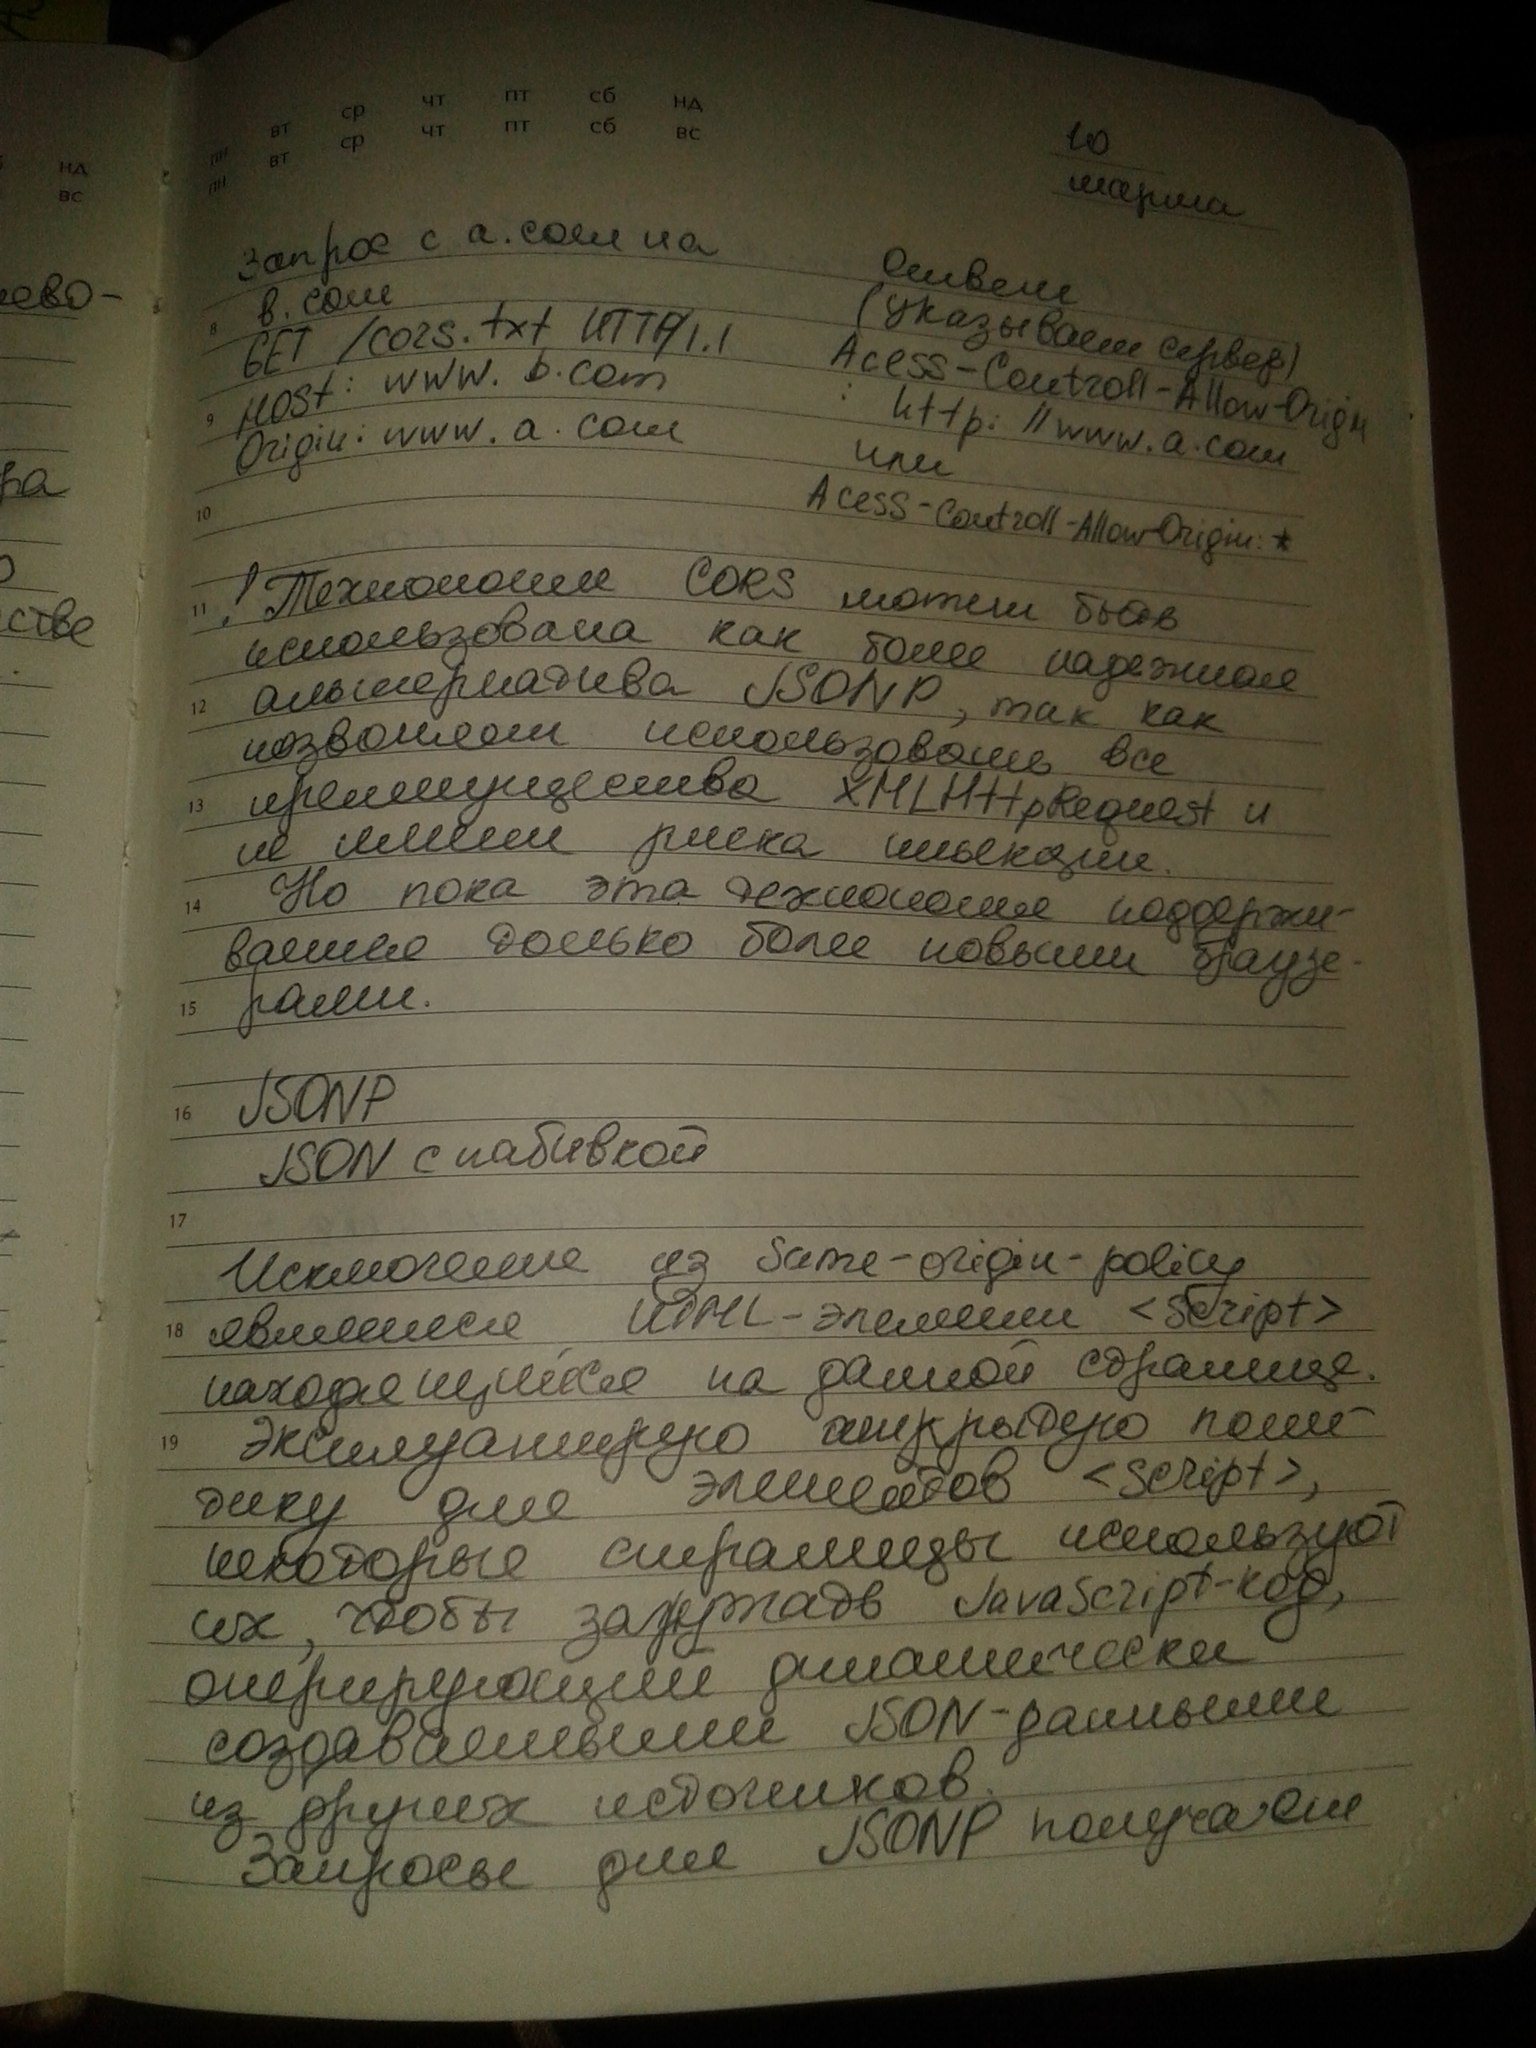 НД
ВС
ПН ВТ СР ЧТ ПТ СБ НД
ПН ВТ СР ЧТ ПТ СБ ВС
10
марта
Запрос с a.com на
b.com
GET /cors.txt HTTP/1.1
Host: www.b.com
Origin: www.a.com
Ответ
(указывает сервер)
Acess-Controll-Allow-Origin
: http://www.a.com
или
Acess-Controll-Allow-Origin: *
! Технология CORS может быть
использована как более надежная
альтернатива JSONP, так как
позволяет использовать все
преимущества XMLHttpRequest и
не имеет риска инъекции.
Но пока эта технология поддержи-
вается только более новыми браузе-
рами.
JSONP
JSON с набивкой
Исключением из Same-origin-policy
является HTML-элемент <script>
находящийся на данной странице.
Эксплуатируюю открытую поли-
тику для элементов <script>,
некоторые страницы используют
их, чтобы загружать JavaScript-код,
оперирующий динамически
создаваемыми JSON-данными
из других источников.
Запросы для JSONP получают
8
9
10
11
12
13
14
15
16
17
18
19
ра
стве